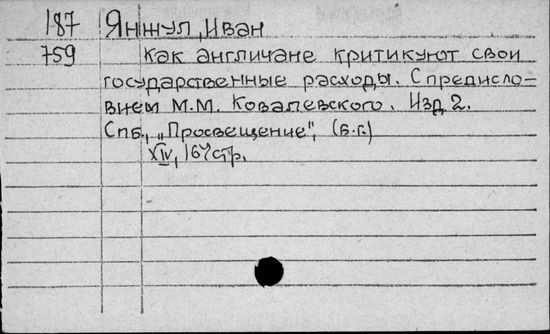 187 Янжул, Иван
759 Как англичане критикуют свои
государственные расходы. С предисло-
вием М.М. Ковалевского. Изд. 2.
Спб., „Просвещение", (б.г.)
XIV, 164 стр.